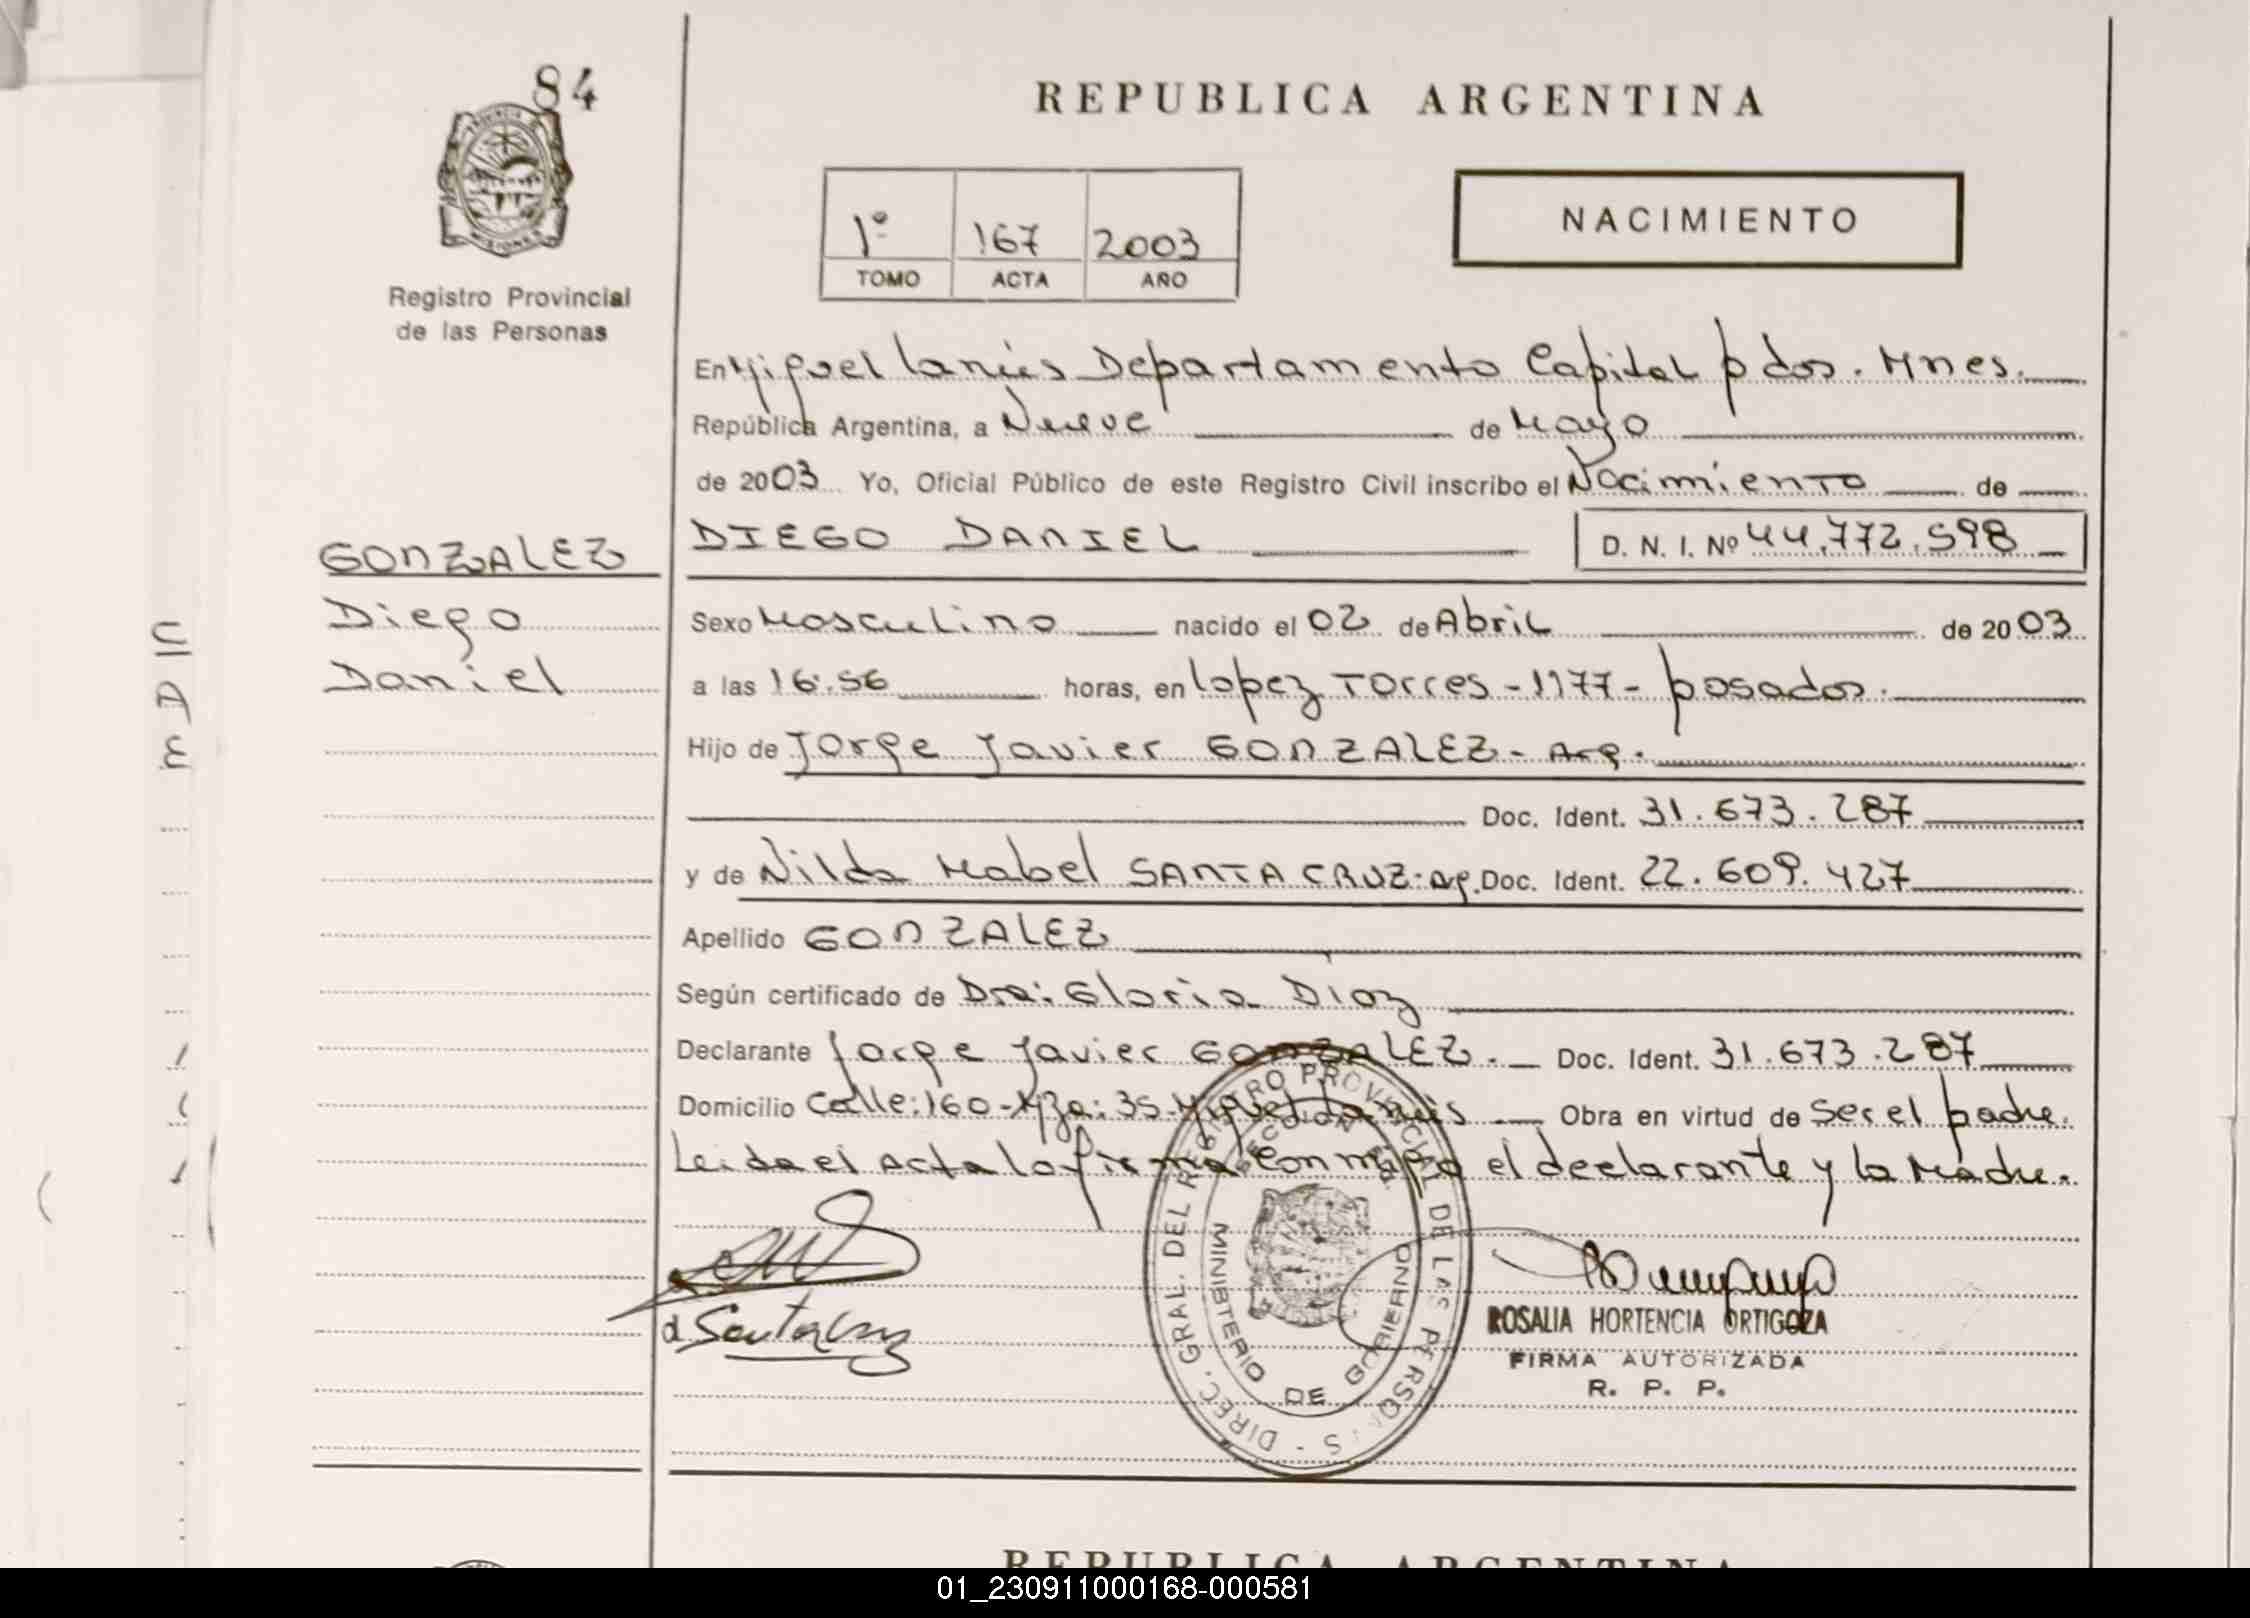 84
PROVINCIA DE
MISIONES
Registro Provincial
de las Personas
REPUBLICA ARGENTINA
1º 167 2003
TOMO ACTA AÑO
NACIMIENTO
En Miguel Lanús Departamento Capital pdas. Mnes.
República Argentina, a Nueve de Mayo
de 2003 Yo, Oficial Público de este Registro Civil inscribo el Nacimiento de
GONZALEZ
Diego
Daniel
DIEGO DANIEL D. N. I. Nº 44.772.598
Sexo Masculino nacido el 02 de Abril de 2003
a las 16:56 horas, en Lopez Torres - 1177 - posadas.
Hijo de Jorge Javier GONZALEZ - Arg.
Doc. Ident. 31.673.287
y de Nilda Mabel SANTA CRUZ - Ag. Doc. Ident. 22.609.427
Apellido GONZALEZ
Según certificado de Dra: Gloria Diaz
Declarante Jorge Javier GONZALEZ. Doc. Ident. 31.673.287
Domicilio Calle: 160 - Mza: 35 - Miguel Lanús Obra en virtud de ser el padre.
Leida el acta la firma conmigo el declarante y la Madre.
DIREC. GRAL. DEL REGISTRO PROVINCIAL DE LAS PERSONAS
MINISTERIO DE GOBIERNO
SantaCruz
ROSALIA HORTENCIA ORTIGOZA
FIRMA AUTORIZADA
R. P. P.
REPUBLICA ARGENTINA
01_230911000168-000581